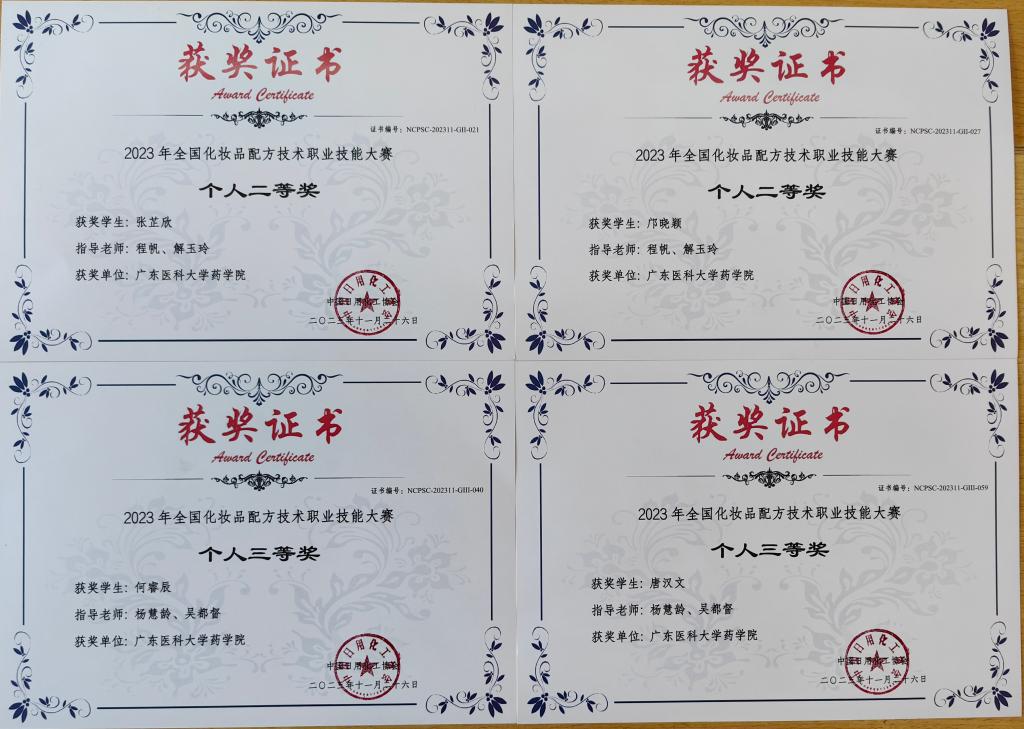 获奖证书
Award Certificate
证书编号：NCPSC-202311-GII-021
2023年全国化妆品配方技术职业技能大赛
个人二等奖
获奖学生：张芷欣
指导老师：程帆、解玉玲
获奖单位：广东医科大学药学院
中国日用化工协会
二〇二三年十一月二十六日
获奖证书
Award Certificate
证书编号：NCPSC-202311-GII-027
2023年全国化妆品配方技术职业技能大赛
个人二等奖
获奖学生：邝晓颖
指导老师：程帆、解玉玲
获奖单位：广东医科大学药学院
中国日用化工协会
二〇二三年十一月二十六日
获奖证书
Award Certificate
证书编号：NCPSC-202311-GIII-040
2023年全国化妆品配方技术职业技能大赛
个人三等奖
获奖学生：何睿辰
指导老师：杨慧龄、吴都督
获奖单位：广东医科大学药学院
中国日用化工协会
二〇二三年十一月二十六日
获奖证书
Award Certificate
证书编号：NCPSC-202311-GIII-059
2023年全国化妆品配方技术职业技能大赛
个人三等奖
获奖学生：唐汉文
指导老师：杨慧龄、吴都督
获奖单位：广东医科大学药学院
中国日用化工协会
二〇二三年十一月二十六日